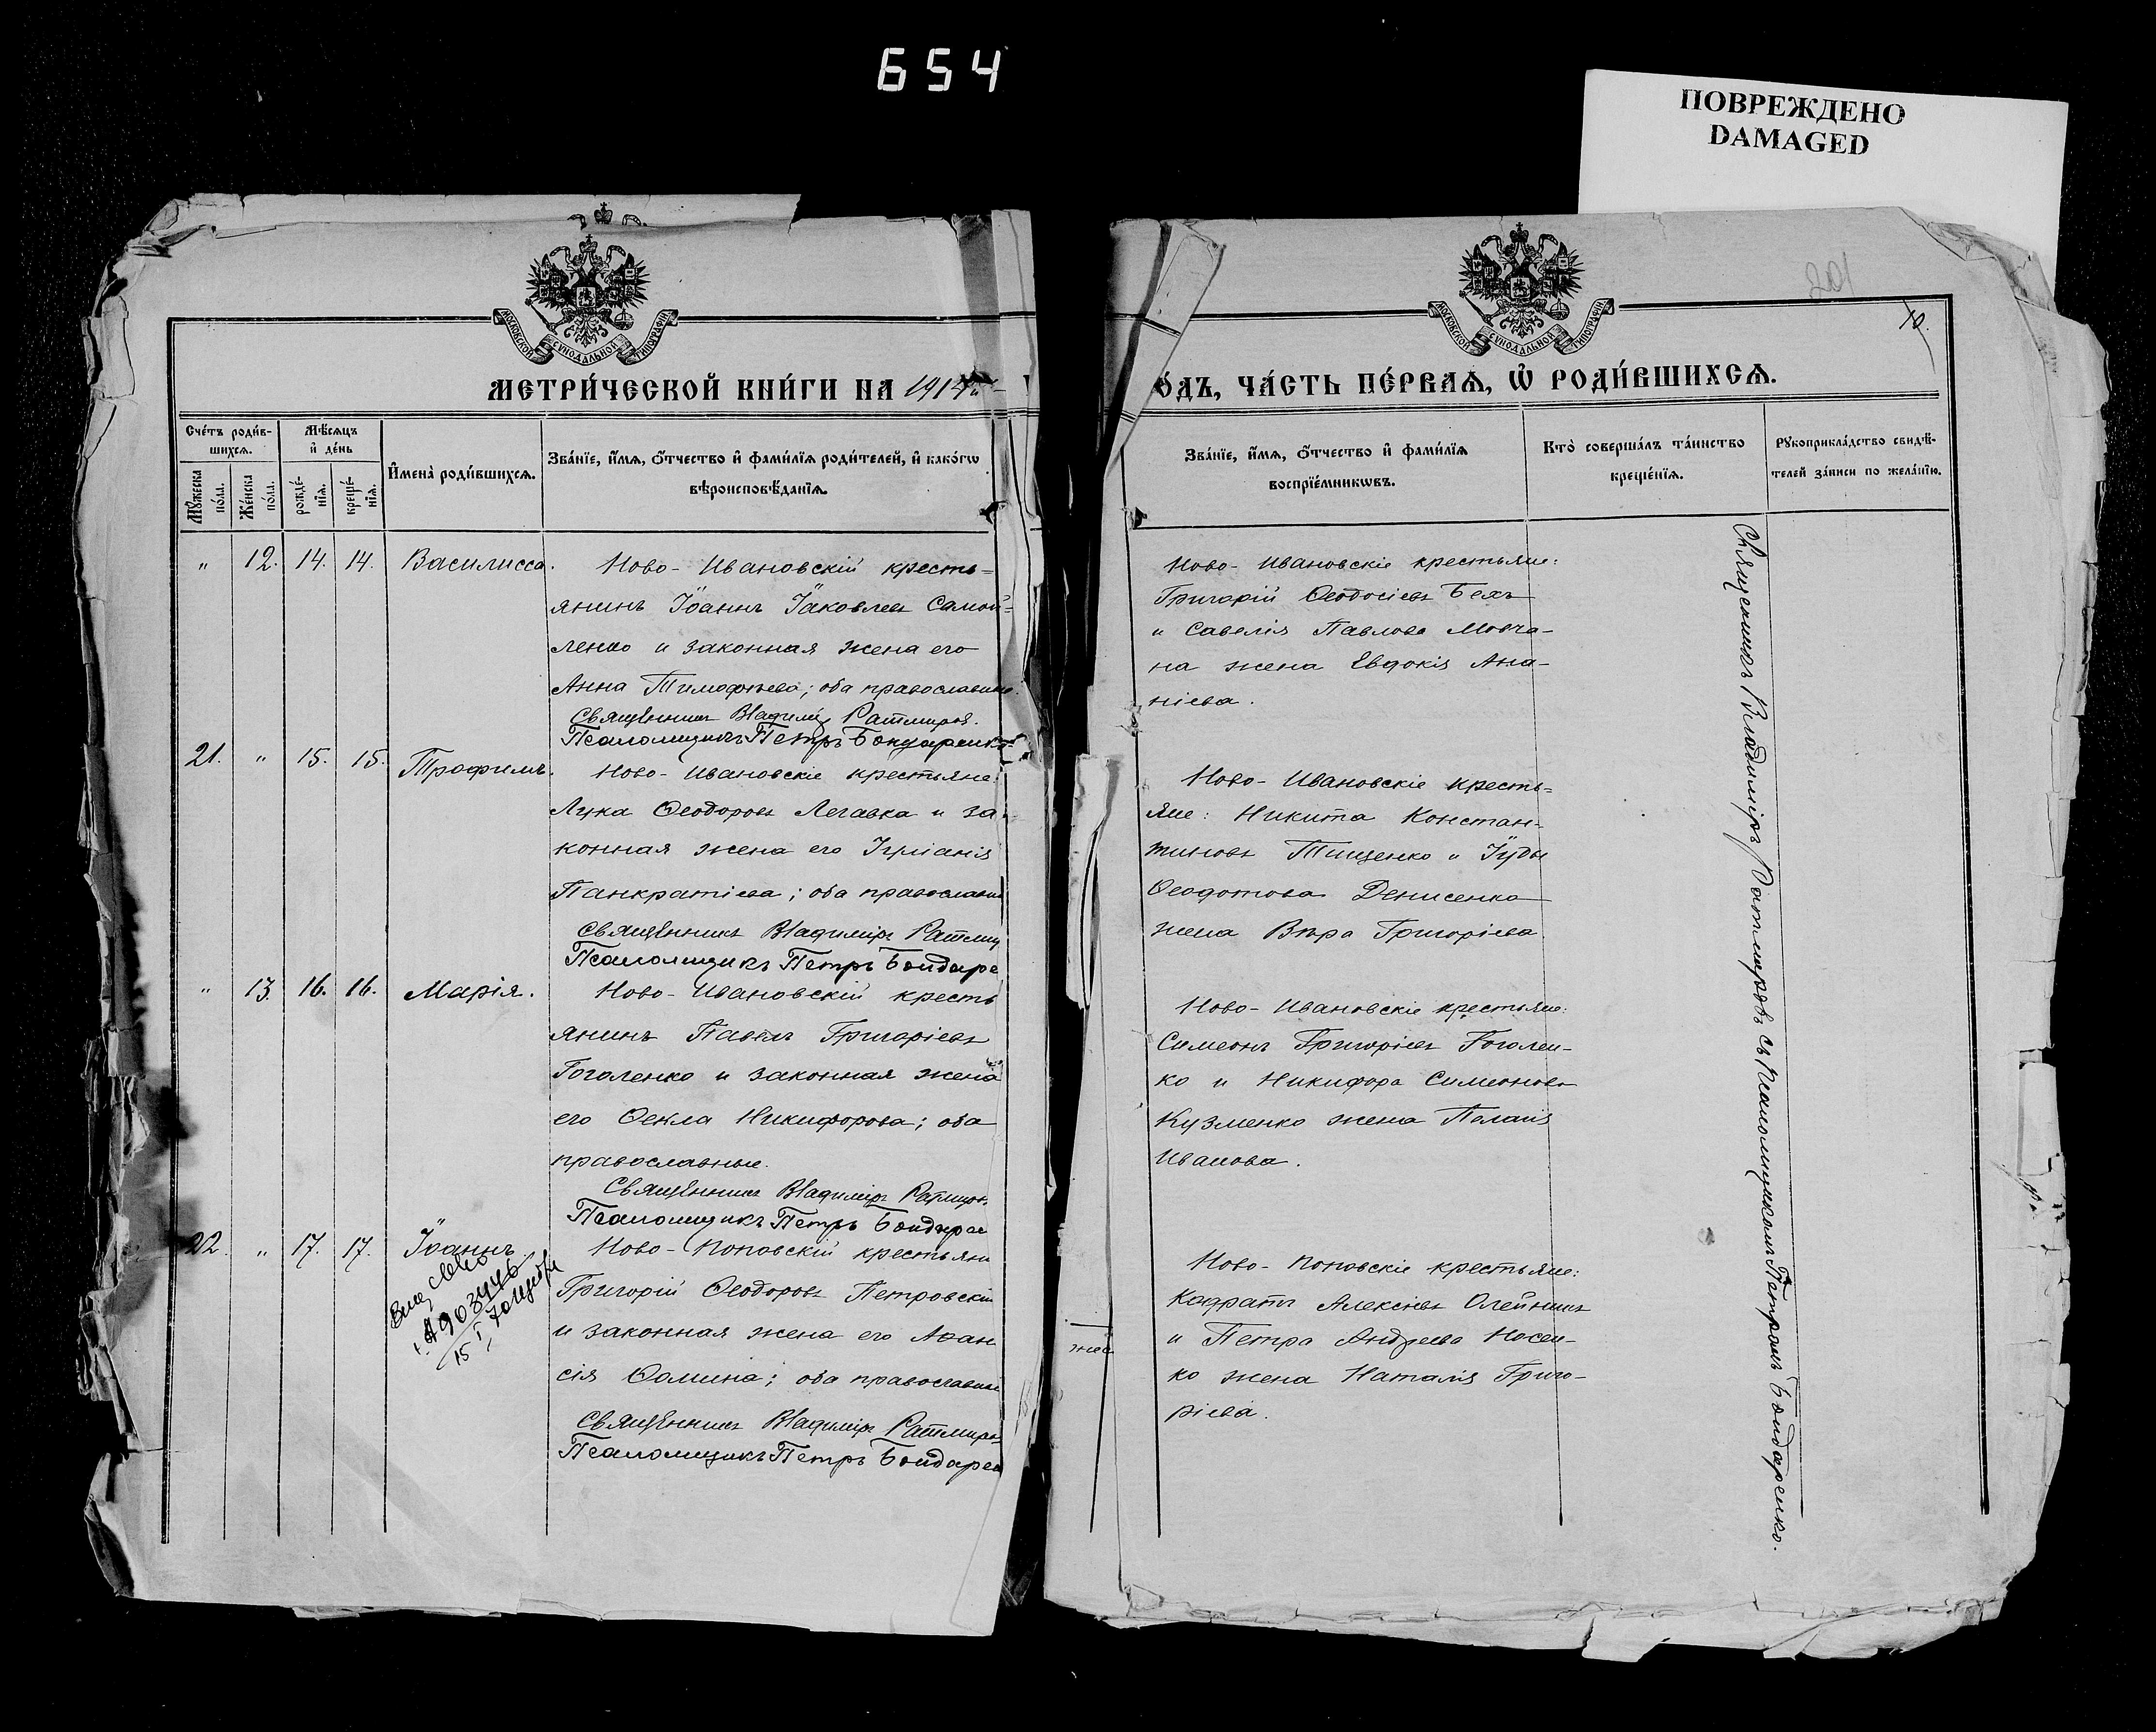 654
ПОВРЕЖДЕНО
DAMAGED
201
10.
МОСКОВСКОЙ СѴНОДАЛЬНОЙ ТИПОГРАФІИ
МОСКОВСКОЙ СѴНОДАЛЬНОЙ ТИПОГРАФІИ
МЕТРИ́ЧЕСКОЙ КНИ́ГИ НА 1914й
О́ДЪ, ЧА́СТЬ ПЕ́РВАѦ, Ѡ҆ РОДИ́ВШИХСѦ.
Сче́тъ роди́в-
шихсѧ.
Мꙋ́жеска по́ла.
Же́нска по́ла.
Мѣ́сѧцъ
и҆ де́нь
рожде́-
нїѧ.
креще́-
нїѧ.
И҆мена̀ роди́вшихсѧ.
Зва́нїе, и҆́мѧ, ѻ҆́тчество и҆ фами́лїѧ роди́телей, и҆ како́гѡ
вѣроисповѣ́данїѧ.
Зва́нїе, и҆́мѧ, ѻ҆́тчество и҆ фами́лїѧ
воспрїе́мникѡвъ.
Кто̀ соверша́лъ та́инство
креще́нїѧ.
Рꙋкоприкла́дство свидѣ́-
телей за́писи по жела́нїю.
" 12. 14. 14. Василисса.
Ново-Ивановскій кресть=
янинъ Іоаннъ Іаковлевъ Самой=
ленко и законная жена его
Анна Тимофѣева; оба православные
Священникъ Владиміръ Ратмиров.
Псаломщикъ Петръ Бондаренко
Ново-Ивановскіе крестьяне:
Григорій Ѳеодосіевъ Бехъ
и Савелія Павлова Мовча-
на жена Евдокія Ана-
ніева.
21. " 15. 15. Трофимъ.
Ново-Ивановскіе крестьяне:
Лука Ѳеодоровъ Легавка и за
конная жена его Іуліанія
Панкратіева; оба православн
Священникъ Владиміръ Ратми
Псаломщикъ Петръ Бондаре
Ново-Ивановскіе кресть=
яне: Никита Констан-
тиновъ Тищенко и Іуды
Ѳеодотова Денисенко
жена Вѣра Григоріева
" 13. 16. 16. Марія.
Ново-Ивановскій кресть
янинъ Павелъ Григоріевъ
Гоголенко и законная жена
его Ѳекла Никифорова; оба
православные.
Священникъ Владиміръ Ратмиров
Псаломщикъ Петръ Бондаре
Ново-Ивановскіе крестьяне:
Симеонъ Григоріевъ Гоголен-
ко и Никифора Симеонова
Кузменко жена Пелагія
Иванова.
22. " 17. 17. Іоаннъ.
903446
15
Ново-Поповскій крестьяни
Григорій Ѳеодоровъ Петровскій
и законная жена его Аѳан
сія Ѳомина; оба православные
Священникъ Владиміръ Ратмиров
Псаломщикъ Петръ Бондарен
Ново-Поповскіе крестьяне:
Кодратъ Алексіевъ Олейникъ
и Петра Андреева Носен-
ко жена Наталія Григо-
ріева.
Священникъ Владиміръ Ратмировъ съ Псаломщикомъ Петромъ Бондаренко.